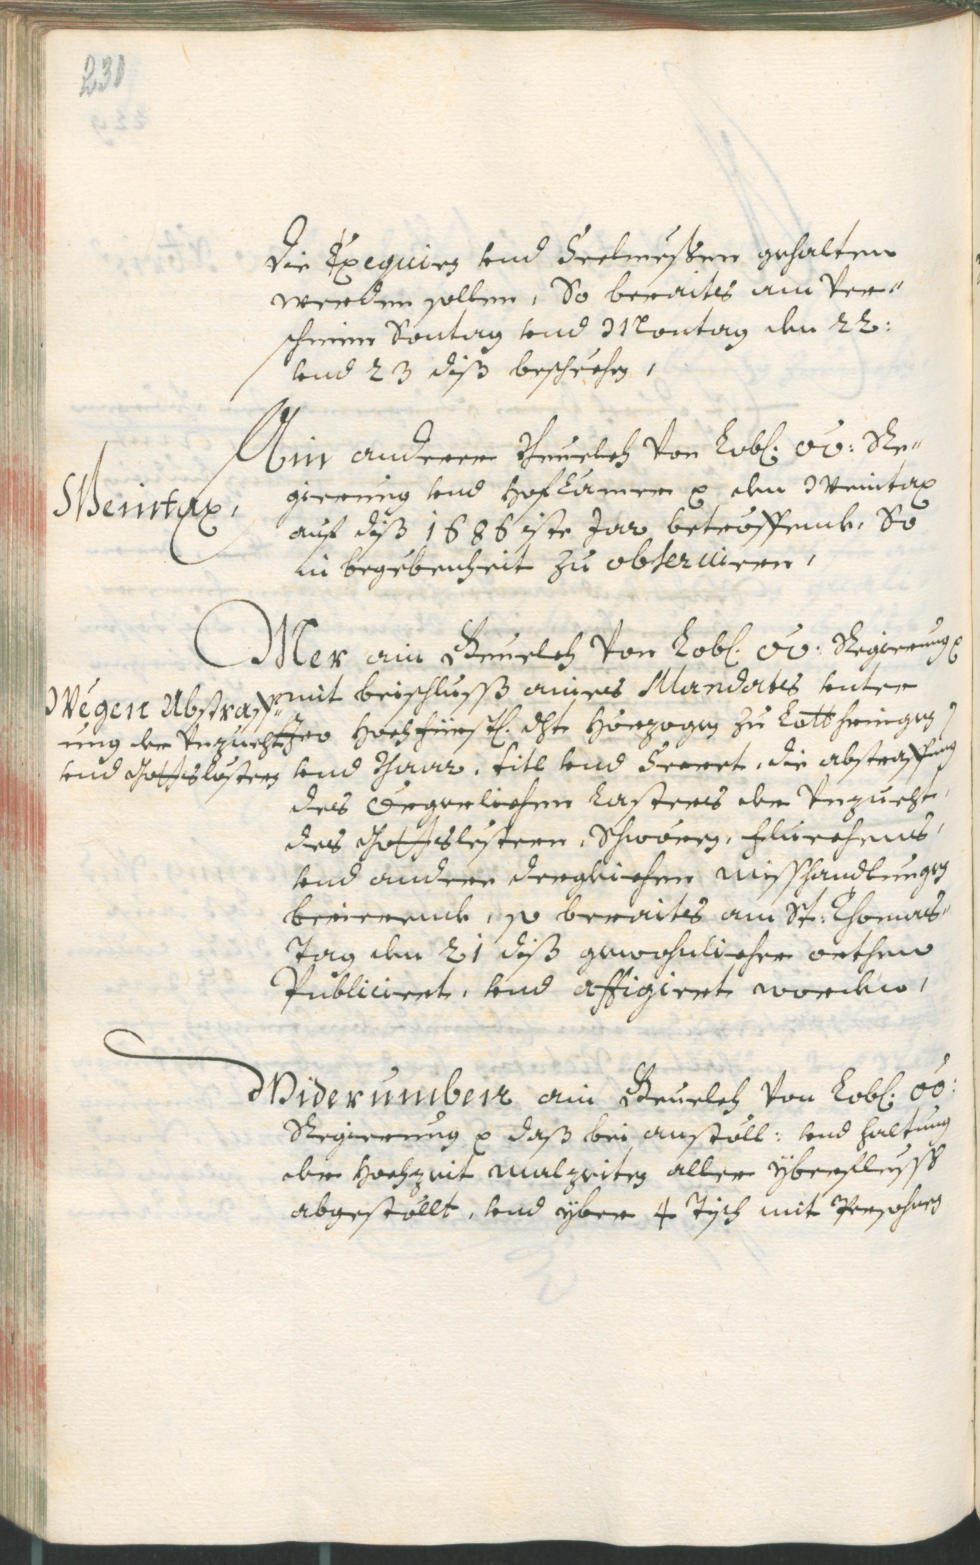 230
die Exequien und Seelmessen gehalten
werden sollen, So beraits am ver-
schinen Sontag und Montag den 22:
und 23 diß beschechen,
Weintax,
Ain anderer Bevelch von Lobl: OÖ: Re-
gierung und Hofcamer p den Weintax
auf diß 1686iste Jar betreffende, So
in begebenheit zu observiern,
Mer ain Bevelch von Lobl: OÖ: Regierung p
Wegen Abstraff-
ung der Unzucht
und Gottslestern
mit beischlusß aines Mandates unter
Iro Hochfürstl: dht: Herzogen zu Lotthringen
und Baar, titl und Secret, die abstraffung
des Ergerlichen Lasters der Unzucht,
des Gottslestern, Schwören, fluechens,
und anderer dergleichen misshandlungen
beierende, so beraits am St: Thomas-
Tag den 21 diß gewohnlicher orthen
Publiciert, und affigiert worden,
Widerumben ain Bevelch von Lobl: OÖ:
Regierung p daß bei anstöll: und haltung
der Hochzeit malzeiten aller yberflusß
abgestöllt, und yber 4 Tisch mit Persohnen